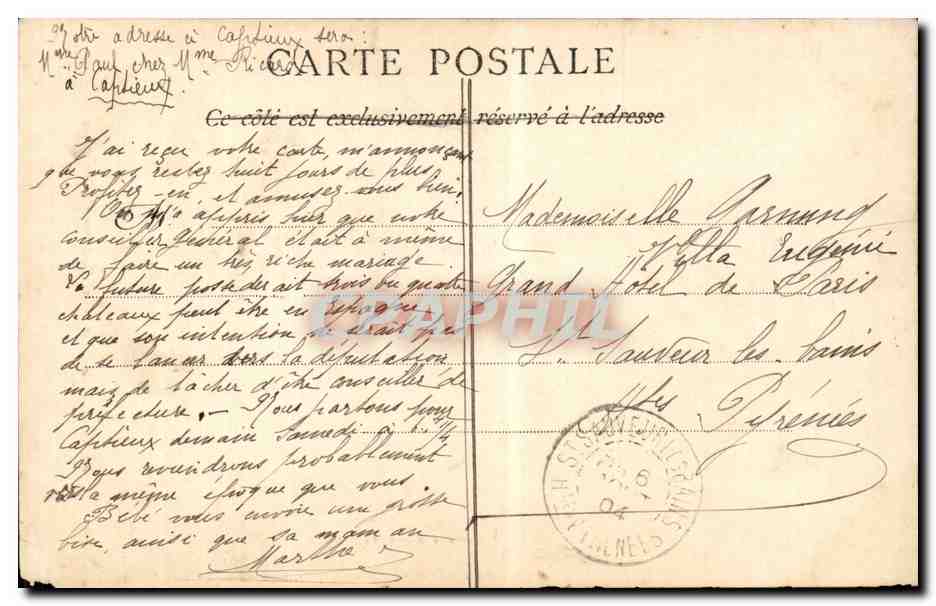 Notre adresse à Captieux sera :
Mme Paul chez Mme Ricard
à Captieux.
CARTE POSTALE
Ce côté est exclusivement réservé à l'adresse
J'ai reçu votre carte, m'annonçant
que vous restez huit jours de plus
Profitez-en, et amusez-vous bien.
On m'a appris hier que notre
conseiller général était à même
de faire un très riche mariage
La future possederait trois ou quatre
chateaux peut être en espagne
et que son intention ne serait pas
de se lancer vers la députation
mais de tâcher d'être conseiller de
préfecture. - Nous partons pour
Captieux demain Samedi à
Nous reviendrons probablement
vers la même époque que vous.
Bébé vous envoie une grosse
bise, ainsi que sa maman
Marthe
Mademoiselle
Villa Eugénie
Grand Hôtel de Paris
St Sauveur les bains
Htes Pyrénées
ST SAUVEUR LES BAINS
6
04
HTES PYRENEES
CPAPHIL